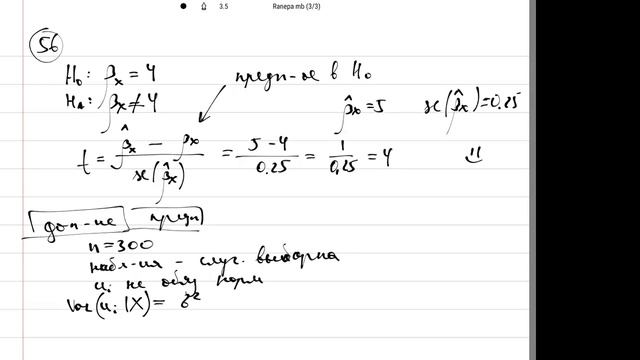 3.5 Ranepa mb (3/3)
56
H₀: βₓ = 4
Hₐ: βₓ ≠ 4
предп-ое в H₀
β̂ₓ = 5 se(β̂ₓ) = 0.25
t = (β̂ₓ − βₓ) / se(β̂ₓ) = (5 − 4) / 0.25 = 1 / 0.25 = 4
доп-ые предп
n = 300
набл-ия - случ. выборка
uᵢ не обяз норм
Var(uᵢ|X) = σ²